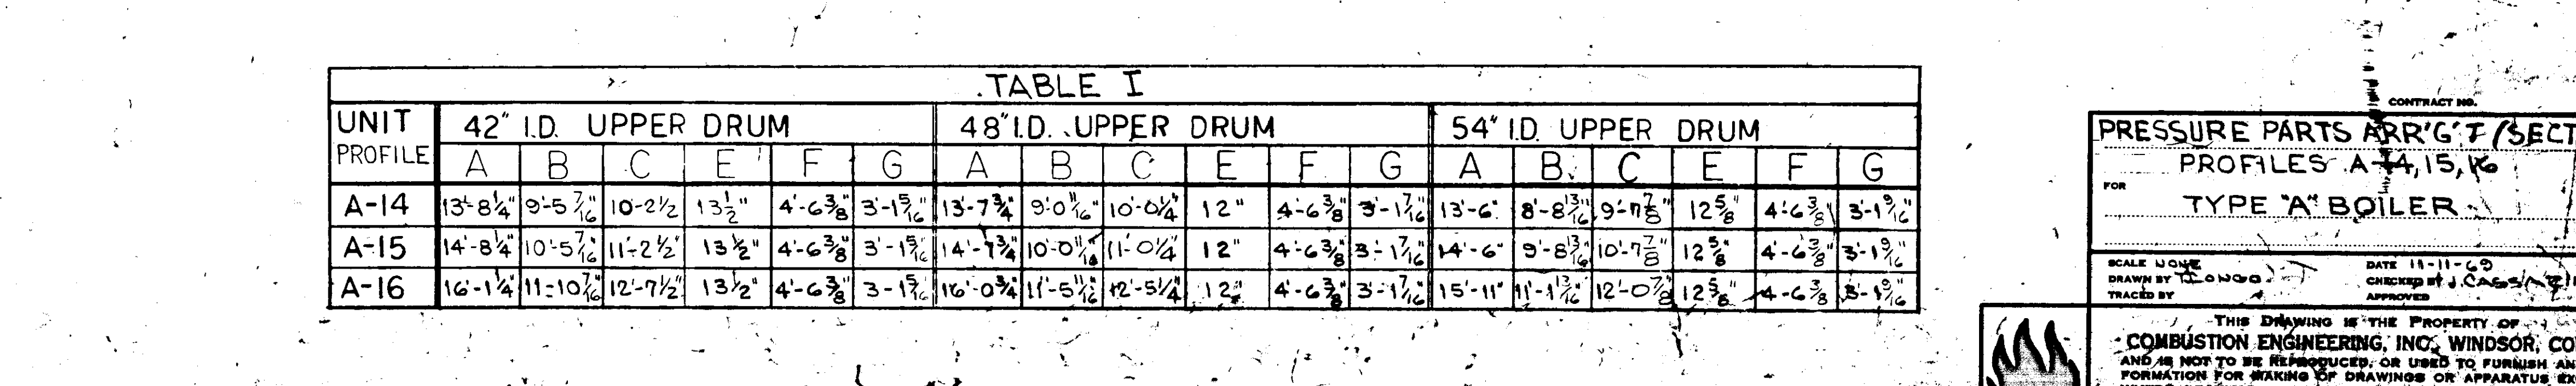 TABLE I
UNIT PROFILE 42" I.D. UPPER DRUM 48" I.D. UPPER DRUM 54" I.D. UPPER DRUM
A B C E F G A B C E F G A B C E F G
A-14 13'-8¼" 9'-5 7/16" 10'-2½ 13½" 4'-6⅜" 3'-1 5/16" 13'-7¾" 9'-0 11/16" 10'-0¼" 12" 4'-6⅜" 3'-1 7/16" 13'-6" 8'-8 13/16" 9'-7⅞" 12⅝" 4'-6⅜" 3'-1 9/16"
A-15 14'-8¼" 10'-5 7/16" 11'-2½" 13½" 4'-6⅜" 3'-1 5/16" 14'-7¾" 10'-0 11/16" 11'-0¼" 12" 4'-6⅜" 3'-1 7/16" 14'-6" 9'-8 13/16" 10'-7⅞" 12⅝" 4'-6⅜" 3'-1 9/16"
A-16 16'-1¼" 11'-10 7/16" 12'-7½" 13½" 4'-6⅜" 3'-1 5/16" 16'-0¾" 11'-5 11/16" 12'-5¼" 12" 4'-6⅜" 3'-1 7/16" 15'-11" 11'-1 13/16" 12'-0⅞" 12⅝" 4'-6⅜" 3'-1 9/16"
CONTRACT NO.
PRESSURE PARTS ARR'G'T (SECT
PROFILES A-14, 15, 16
FOR
TYPE "A" BOILER
SCALE NONE DATE 11-11-69
DRAWN BY CHECKED
TRACED BY APPROVED
THIS DRAWING IS THE PROPERTY OF
COMBUSTION ENGINEERING, INC., WINDSOR, CO
AND IS NOT TO BE REPRODUCED, OR USED TO FURNISH AN
FORMATION FOR MAKING OF DRAWINGS OR APPARATUS EX